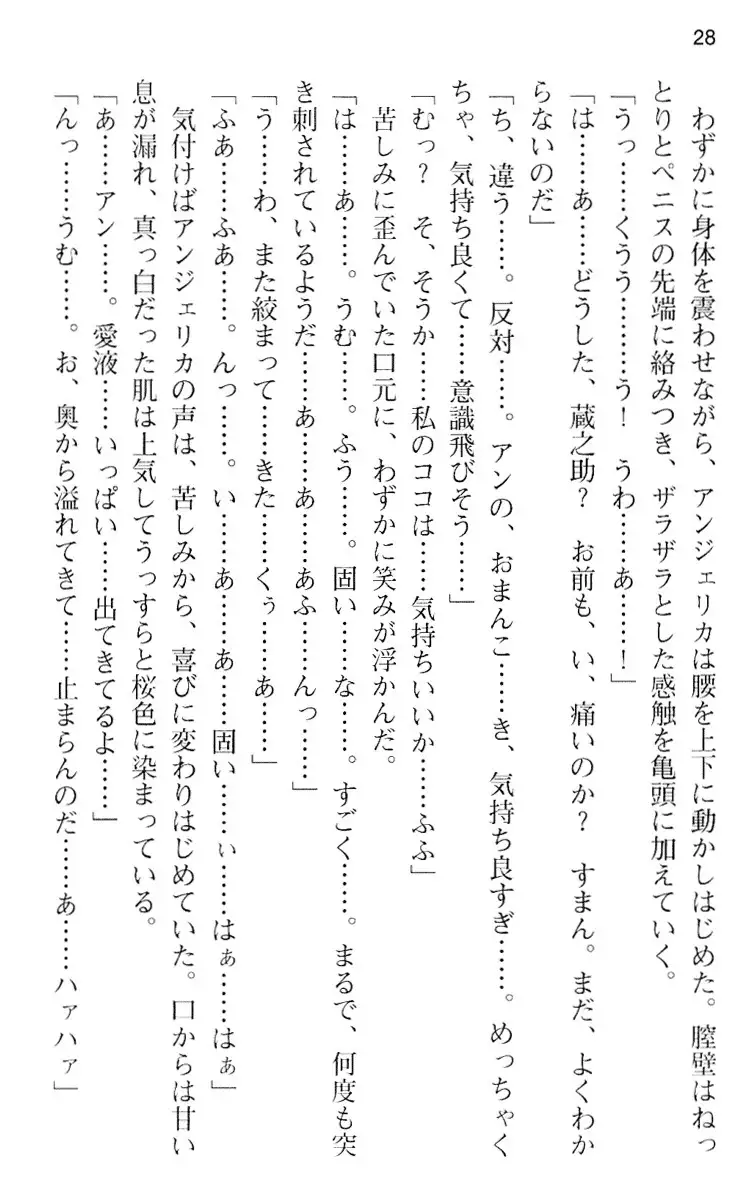 28
わずかに身体を震わせながら、アンジェリカは腰を上下に動かしはじめた。膣壁はねっ
とりとペニスの先端に絡みつき、ザラザラとした感触を亀頭に加えていく。
「うっ……くうう………う！　うわ……あ……！」
「は……あ……どうした、蔵之助？　お前も、い、痛いのか？　すまん。まだ、よくわか
らないのだ」
「ち、違う……。反対……。アンの、おまんこ……き、気持ち良すぎ……。めっちゃく
ちゃ、気持ち良くて……意識飛びそう……」
「むっ？　そ、そうか……私のココは……気持ちいいか……ふふ」
苦しみに歪んでいた口元に、わずかに笑みが浮かんだ。
「は……あ……。うむ……。ふう……。固い……な……。すごく……。まるで、何度も突
き刺されているようだ……あ……あ……あふ……んっ……」
「う……わ、また絞まって……きた……くぅ……あ……」
「ふあ……ふあ……。んっ……。い……あ……あ……固い……ぃ……はぁ……はぁ」
気付けばアンジェリカの声は、苦しみから、喜びに変わりはじめていた。口からは甘い
息が漏れ、真っ白だった肌は上気してうっすらと桜色に染まっている。
「あ……アン……。愛液……いっぱい……出てきてるよ……」
「んっ……うむ……。お、奥から溢れてきて……止まらんのだ……あ……ハァハァ」